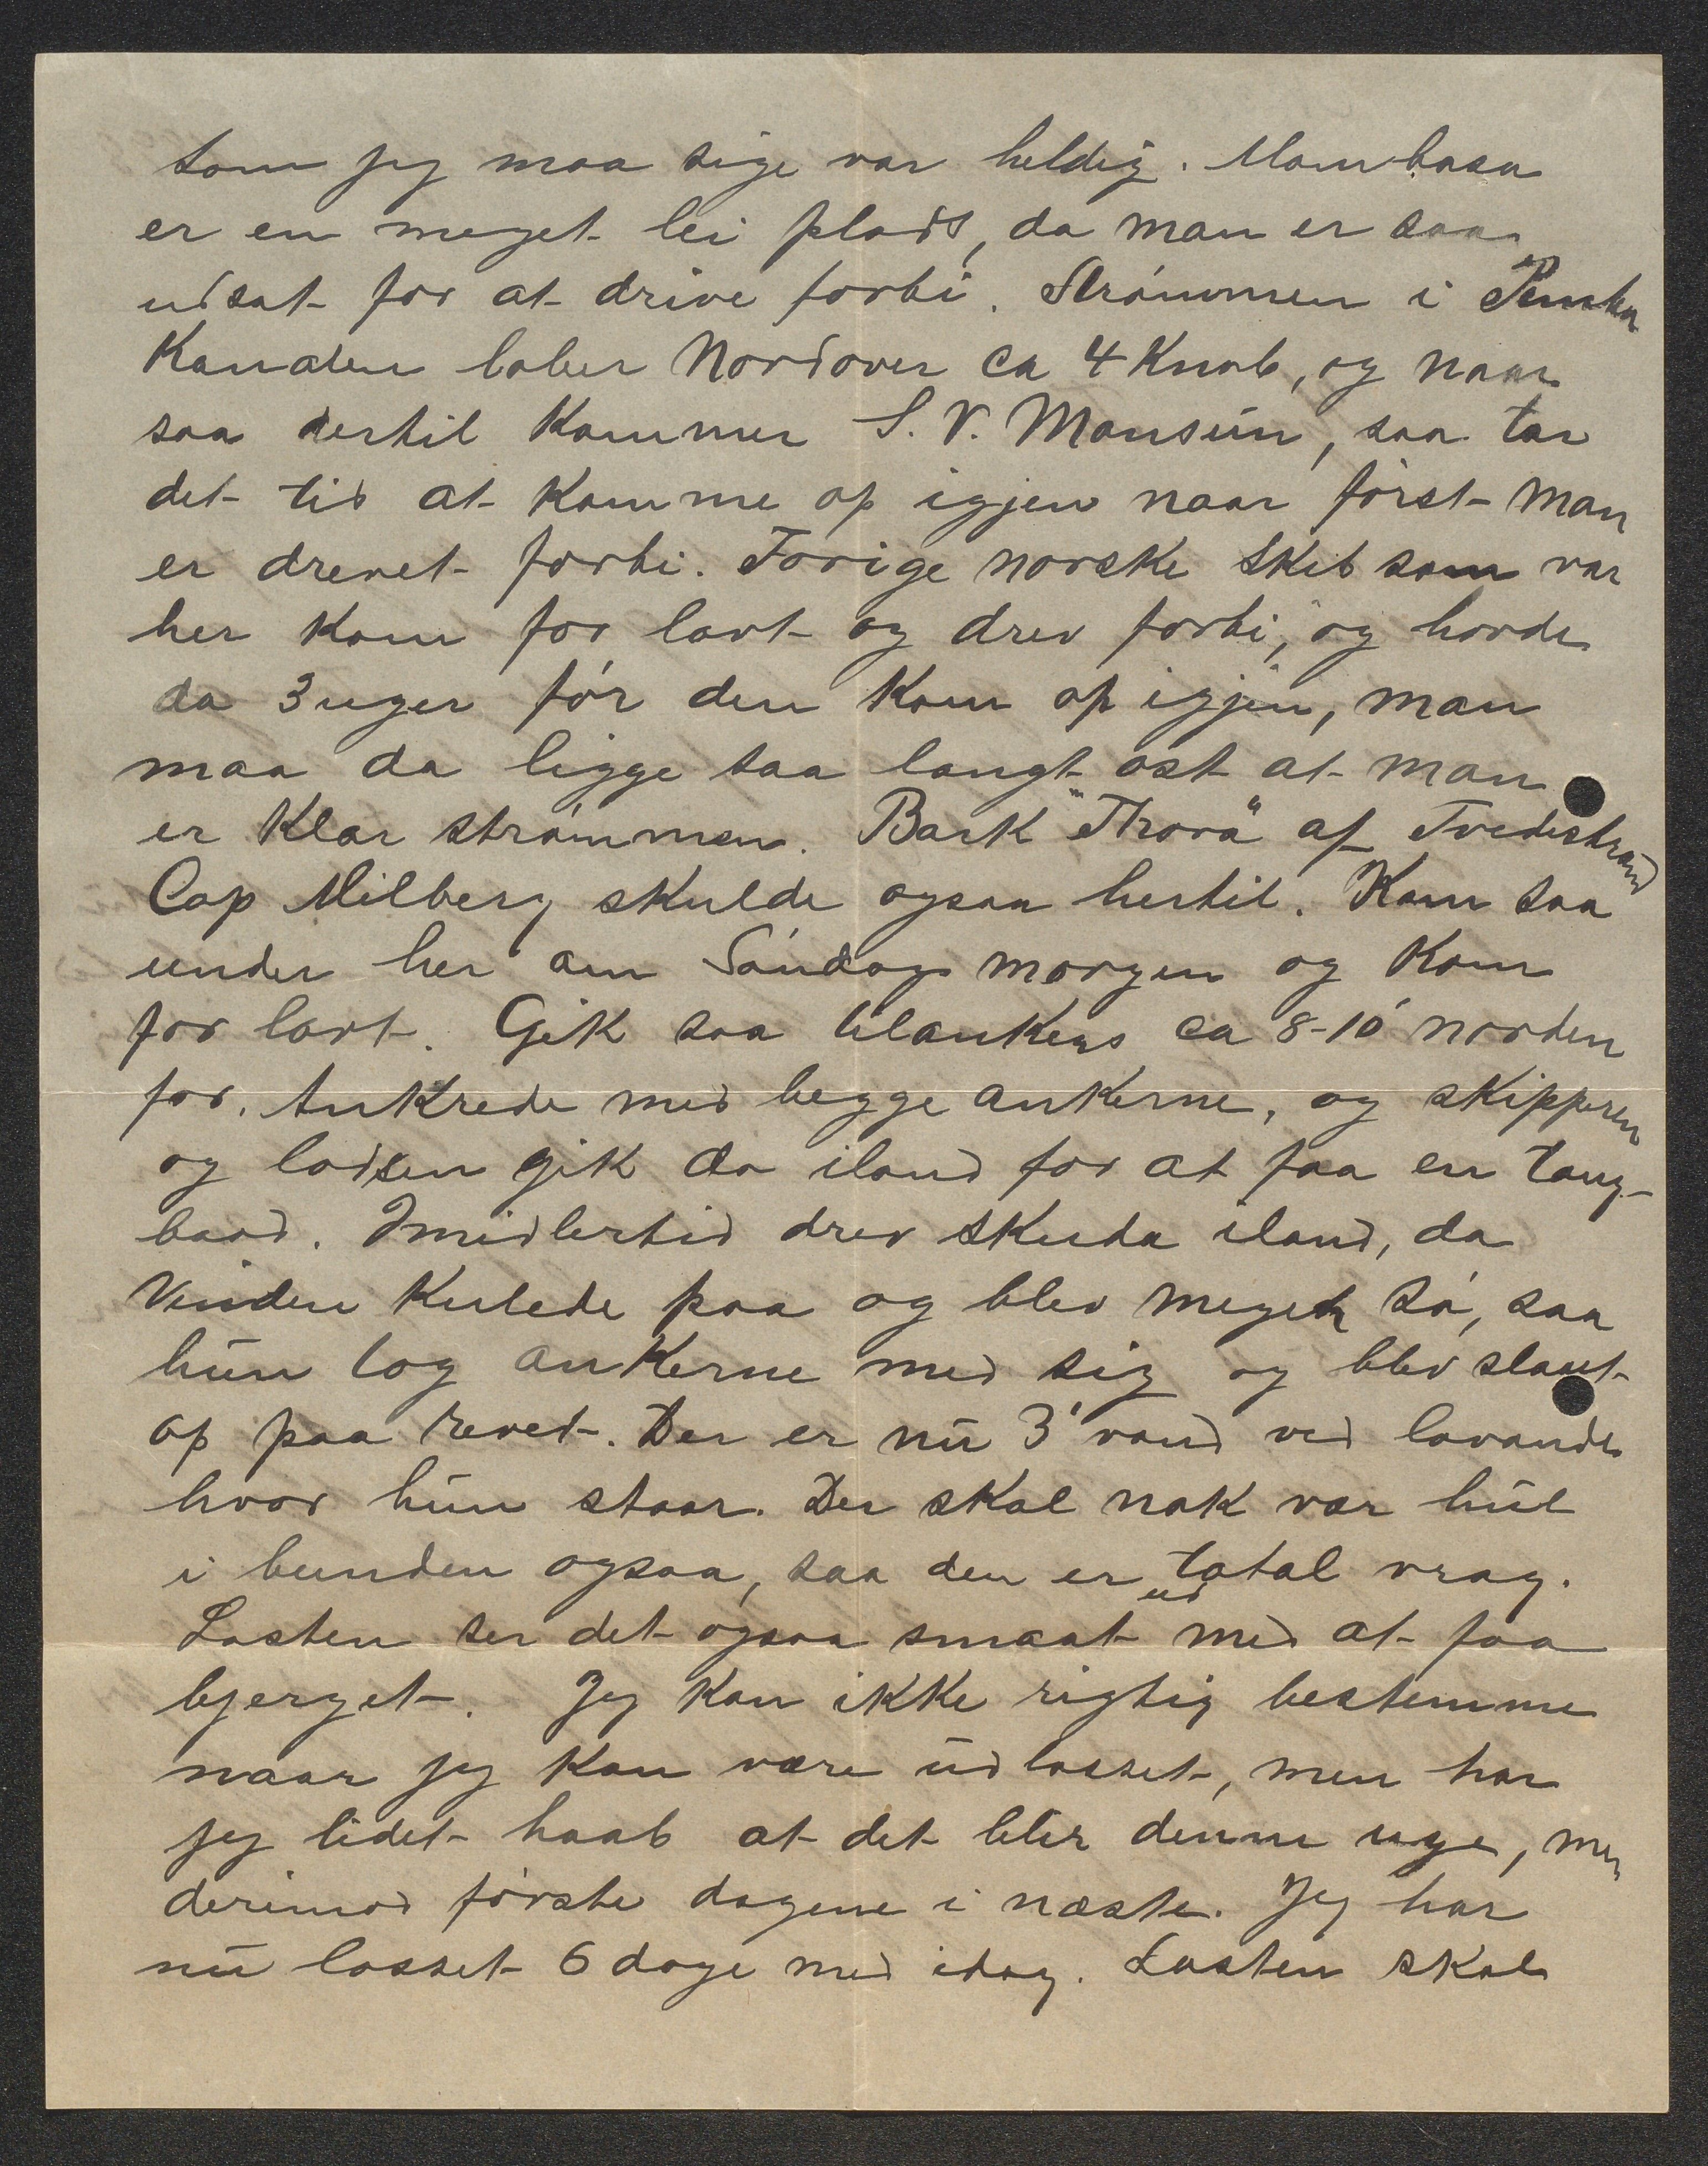 som jeg maa sige var heldig. Mombasa
er en meget lei plads, da man er saa
udsat for at drive forbi. Strømmen i Pemba
Kanalen løber Nordover ca 4 Knob, og naar
saa dertil Kommer S. V. Monsun, saa tar
det tid at Komme op igjen naar først man
er drevet forbi. Forige norske Skib som var
her Kom for lavt og drev forbi, og havde
da 3 uger før den Kom op igjen, man
maa da ligge saa langt øst at man
er Klar strømmen. Bark "Thora" af Tvedestrand
Cap Milberg skulde ogsaa hertil. Kom saa
under her om Søndags morgen og Kom
for lavt. Gik saa tilankers ca 8-10' norden
for. Ankrede med begge ankerne, og skipperen
og lodsen gik da iland for at faa en taug-
baad. Imidlertid drev skuda iland, da
Vinden Kulede paa og blev meget sø, saa
hun tog ankerne med sig og blev slaaet
op paa revet. Der er nu 3' vand ved lavande
hvor hun staar. Der skal nok vær hul
i bunden ogsaa, saa den er total vrag.
Lasten ser det ogsaa smaat ud med at faa
bjerget. Jeg Kan ikke rigtig bestemme
naar jeg Kan være udlosset, men har
jeg lidet haab at det blir denne uge, men
derimod første dagene i næste. Jeg har
nu losset 6 dage med idag. Lasten skal